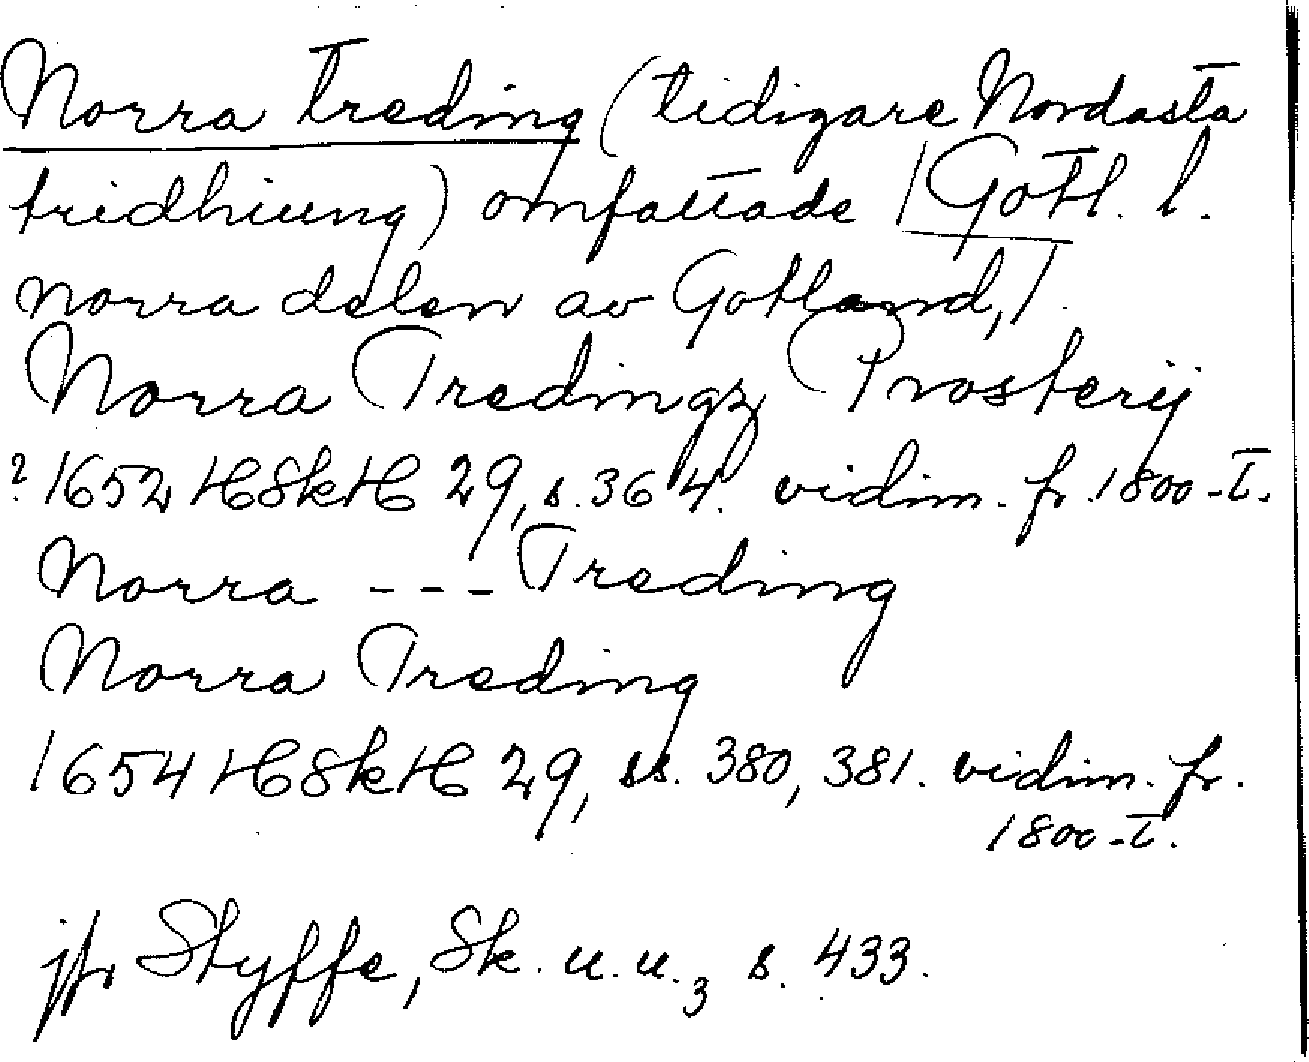 Norra treding (tidigare Nordasta
tridhiung) omfattade | Gotl. l.
norra delen av Gotland, |.
Norra Tredingz Prosterij
? 1652 HSkH 29, s. 364. vidim. fr. 1800-t.
Norra --- Treding
Norra Treding
1654 HSkH 29, ss. 380, 381. vidim. fr.
1800-t.
jfr Styffe, Sk. u. u.3 s. 433.